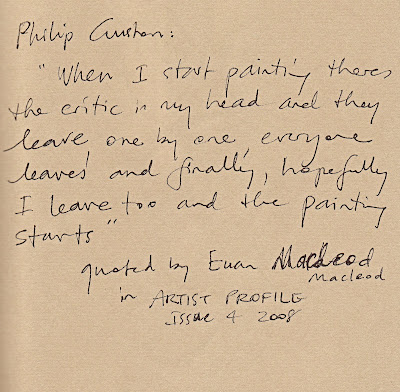 Philip Guston:
"When I start painting theres
the critic in my head and they
leave, one by one, everyone
leaves, and finally, hopefully
I leave too and the painting
starts"
quoted by Euan Macleod
Macleod
in ARTIST PROFILE
Issue 4 2008